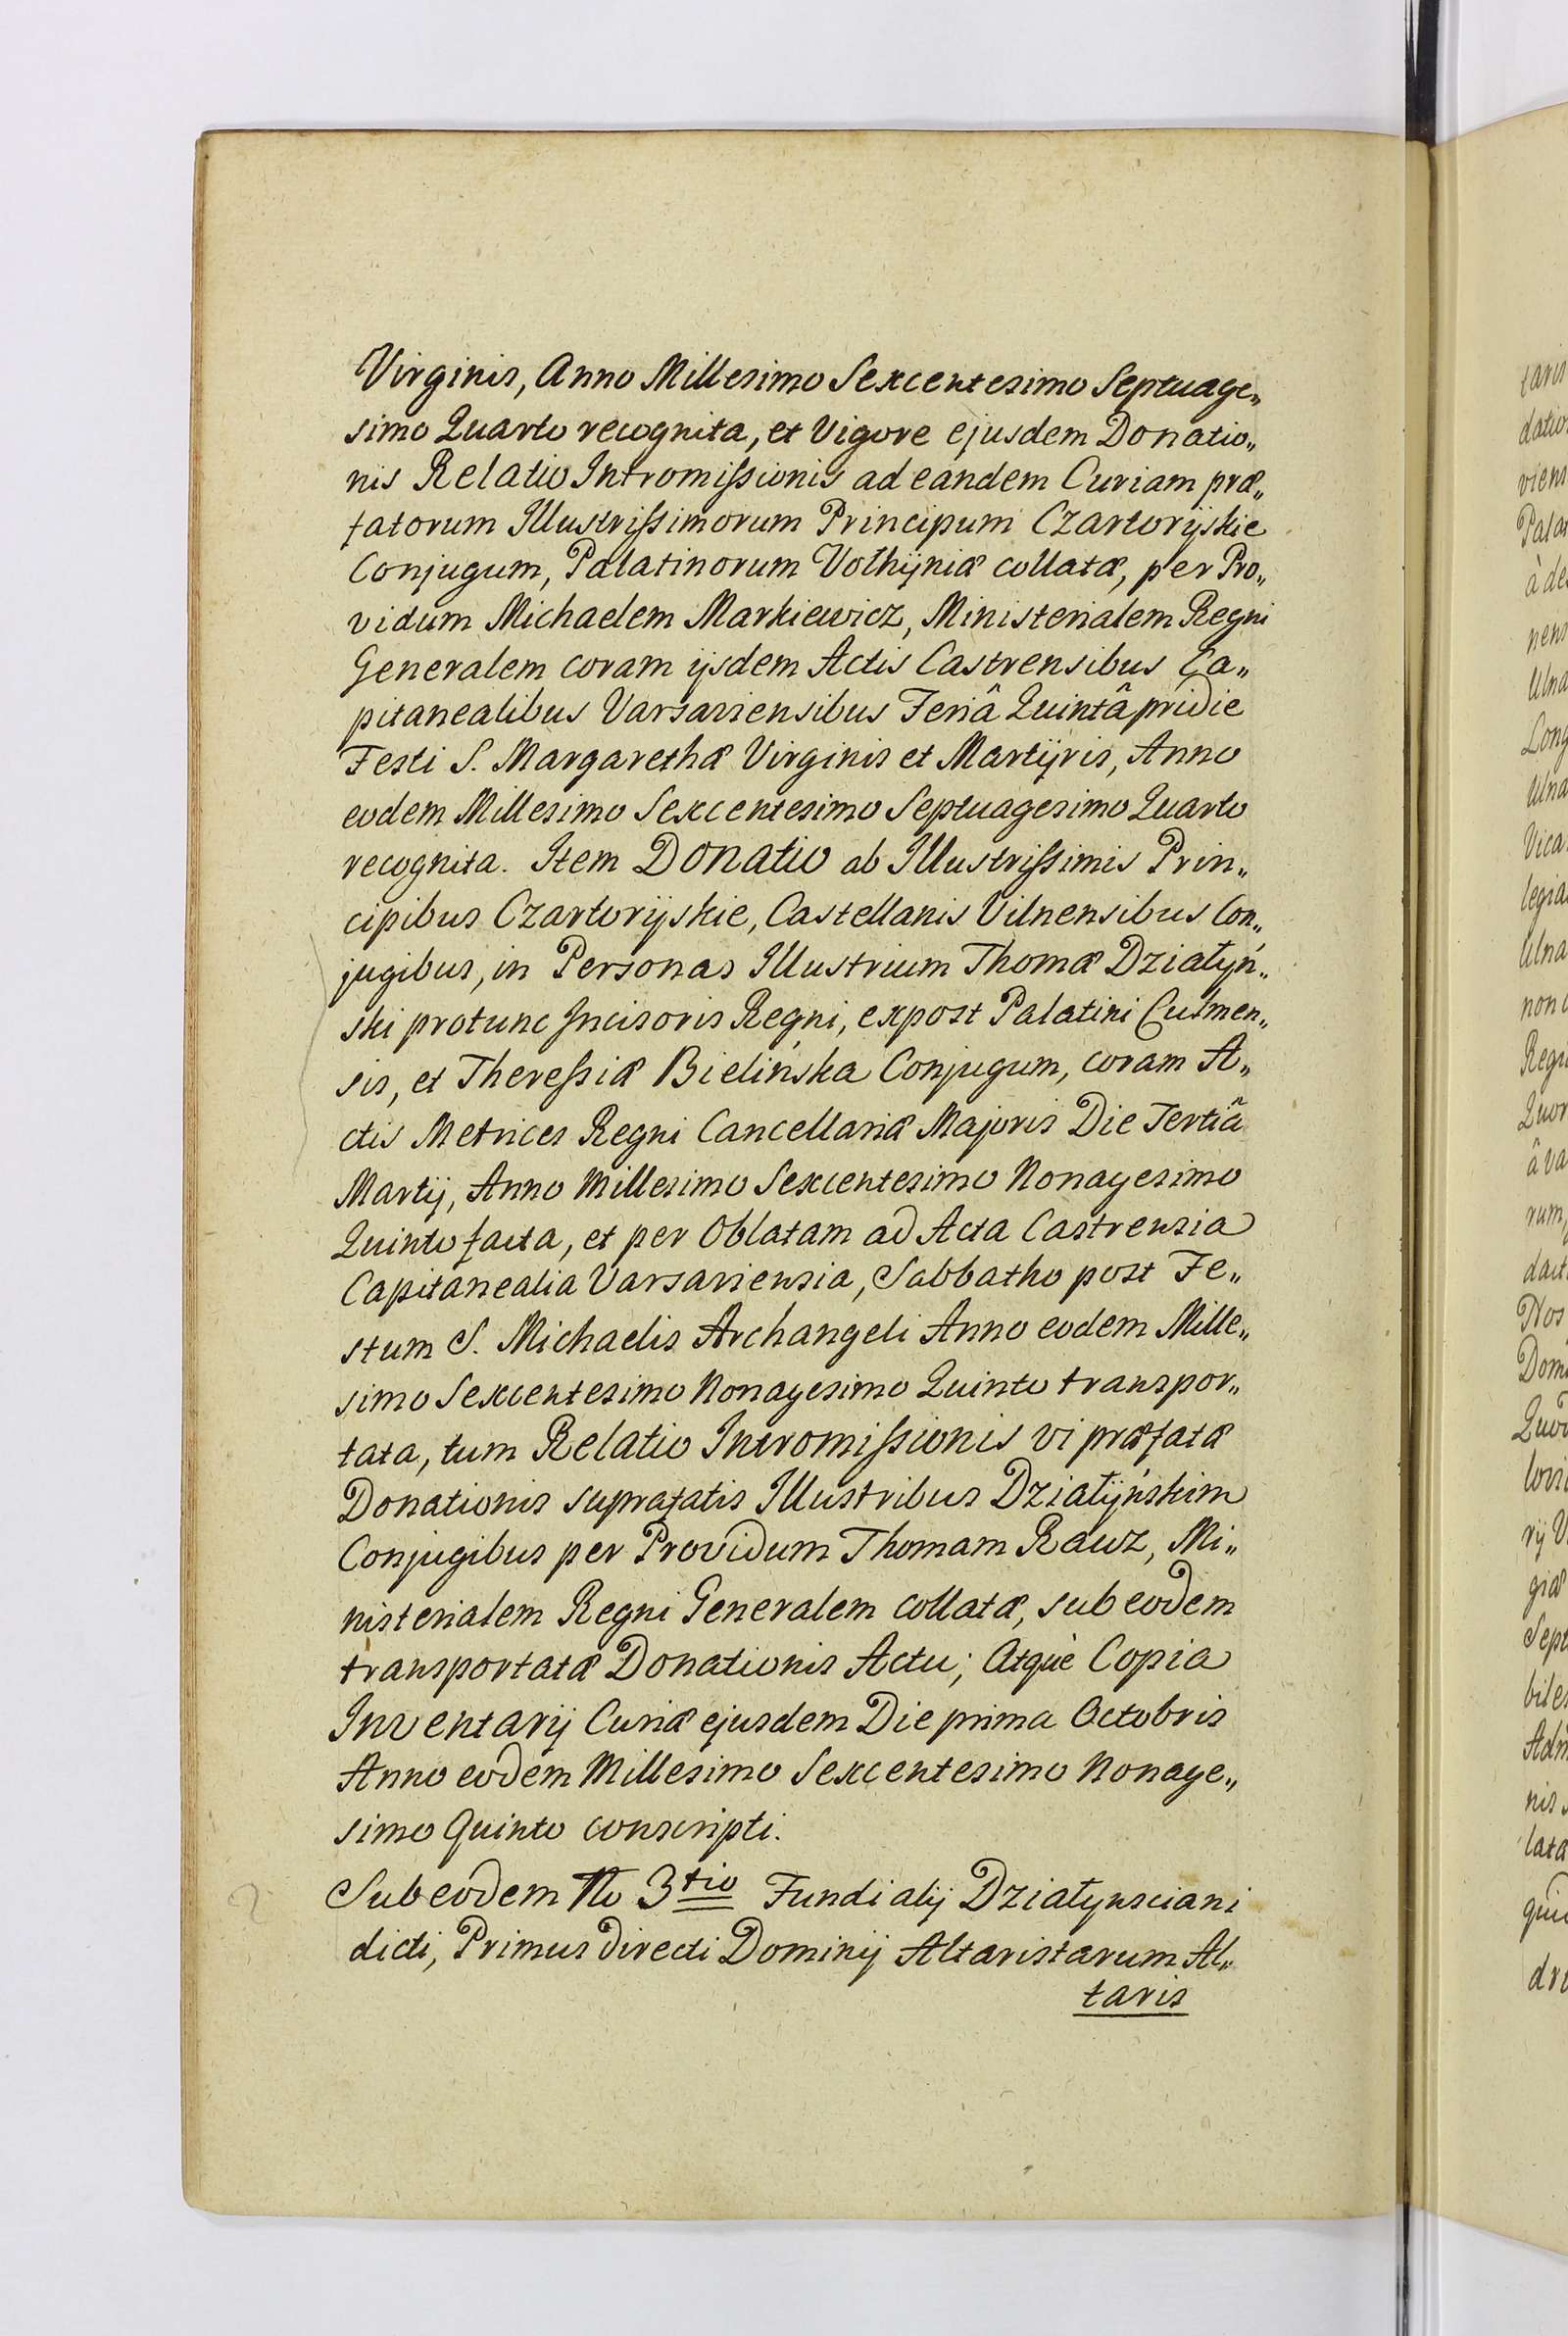 Virginis, Anno Millesimo Sexcentesimo Septuage„
simo Quarto recognita, et Vigore ejusdem Donatio„
nis Relatio Intromissionis ad eandem Curiam præ„
fatorum Illustrissimorum Principum Czartoryskie
Conjugum, Palatinorum Volhyniæ collatæ, per Pro„
vidum Michaelem Markiewicz, Ministerialem Regni
Generalem coram ijsdem Actis Castrensibus Ca„
pitanealibus Varsaviensibus Feriâ Quintâ pridie
Festi S. Margarethæ Virginis et Martyris, Anno
eodem Millesimo Sexcentesimo Septuagesimo Quarto
recognita. Item Donatio ab Illustrissimis Prin„
cipibus Czartoryskie, Castellanis Vilnensibus Con„
jugibus, in Personas Illustrium Thomæ Działyń„
ski protunc Incisoris Regni, expost Palatini Culmen„
sis, et Theressiæ Bielińska Conjugum, coram A„
ctis Metrices Regni Cancellariæ Majoris Die Tertiâ
Martij, Anno Millesimo Sexcentesimo Nonagesimo
Quinto facta, et per Oblatam ad Acta Castrensia
Capitanealia Varsaviensia, Sabbatho post Fe„
stum S. Michaelis Archangeli Anno eodem Mille„
simo Sexcentesimo Nonagesimo Quinto transpor„
tata, tum Relatio Intromissionis vi præfatæ
Donationis suprafatis Illustribus Działyńskim
Conjugibus per Providum Thomam Rawz, Mi„
nisterialem Regni Generalem collatæ, sub eodem
transportatæ Donationis Actu; Atquè Copia
Inventarij Curiæ ejusdem Die prima Octobris
Anno eodem Millesimo Sexcentesimo Nonage„
simo Quinto conscripti.
Sub eodem No 3tio Fundi alij Działynsciani
dicti, Primus directi Dominij Altaristarum Al„
taris